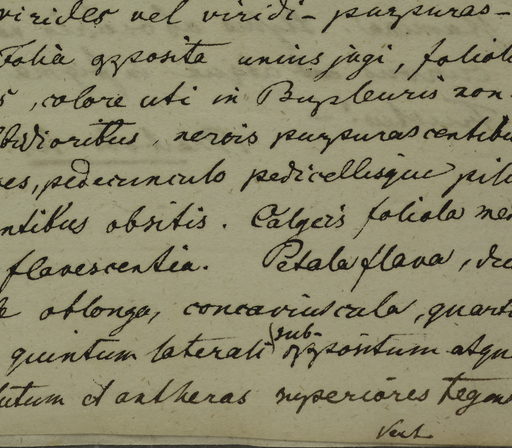 virides vel viridi- purpuras-
Folia opposita unius jugi, foliol
s, colore uti in Bupleuris non-
bidioribus, nervis purpurascentibu
es, pedecunculo pedicellisque pil
ntibus obsitis. Calycis foliola me
flavescentia. Petala flava, du
oblonga, concaviuscula, quart
quintum laterali sub-oppositum atqu
lutum et antheras superiores tegens
Vent